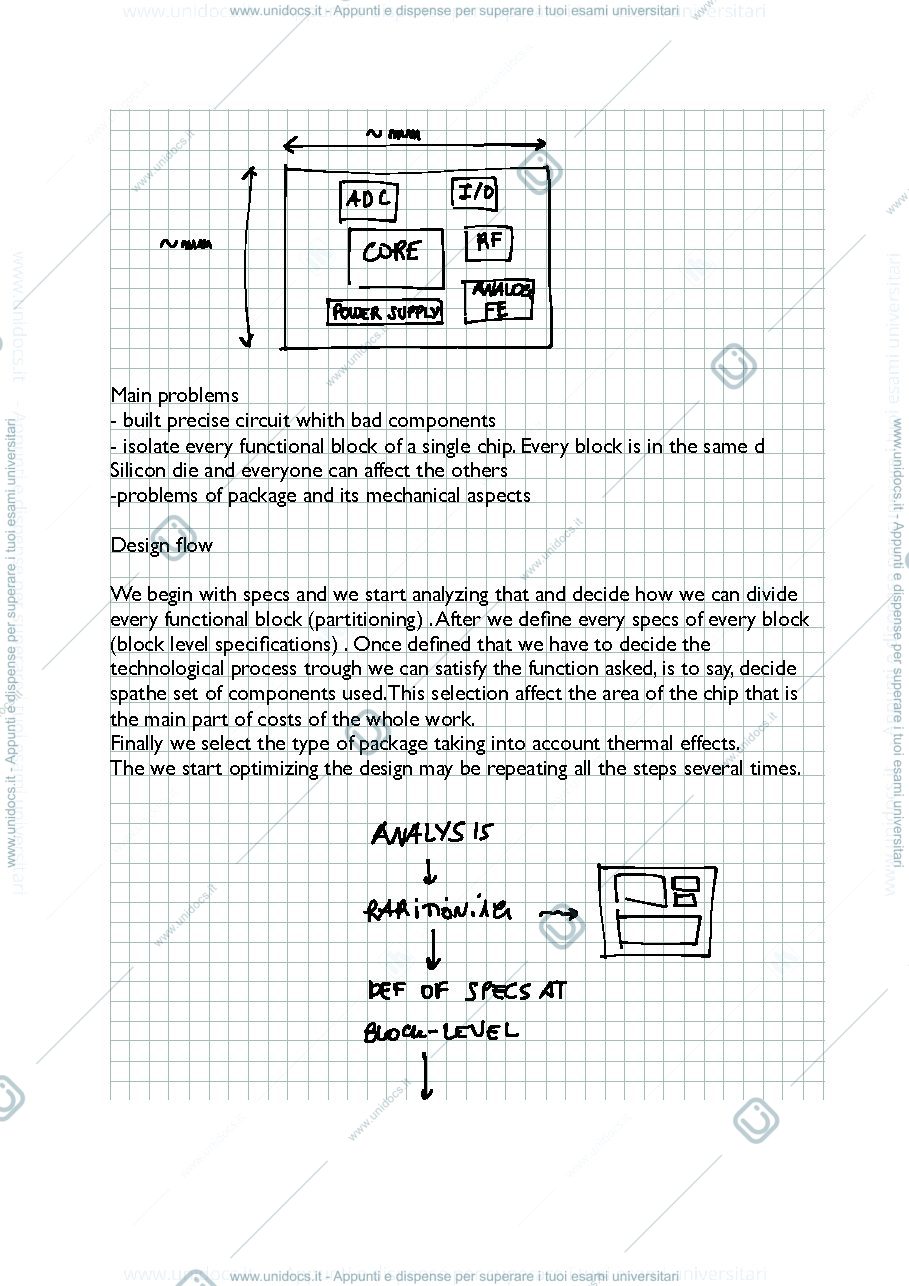 www.unidocs.it - Appunti e dispense per superare i tuoi esami universitari
~ mm
ADC
I/O
~ mm
CORE
RF
ANALOG
FE
POWER SUPPLY
Main problems
- built precise circuit whith bad components
- isolate every functional block of a single chip. Every block is in the same d
Silicon die and everyone can affect the others
-problems of package and its mechanical aspects
Design flow
We begin with specs and we start analyzing that and decide how we can divide
every functional block (partitioning) .After we define every specs of every block
(block level specifications) . Once defined that we have to decide the
technological process trough we can satisfy the function asked, is to say, decide
spathe set of components used.This selection affect the area of the chip that is
the main part of costs of the whole work.
Finally we select the type of package taking into account thermal effects.
The we start optimizing the design may be repeating all the steps several times.
ANALYSIS
DEF OF SPECS AT
BLOCK-LEVEL
www.unidocs.it - Appunti e dispense per superare i tuoi esami universitari
www.unidocs.it - Appunti e dispense per superare i tuoi esami universitari
www.unidocs.it - Appunti e dispense per superare i tuoi esami universitari